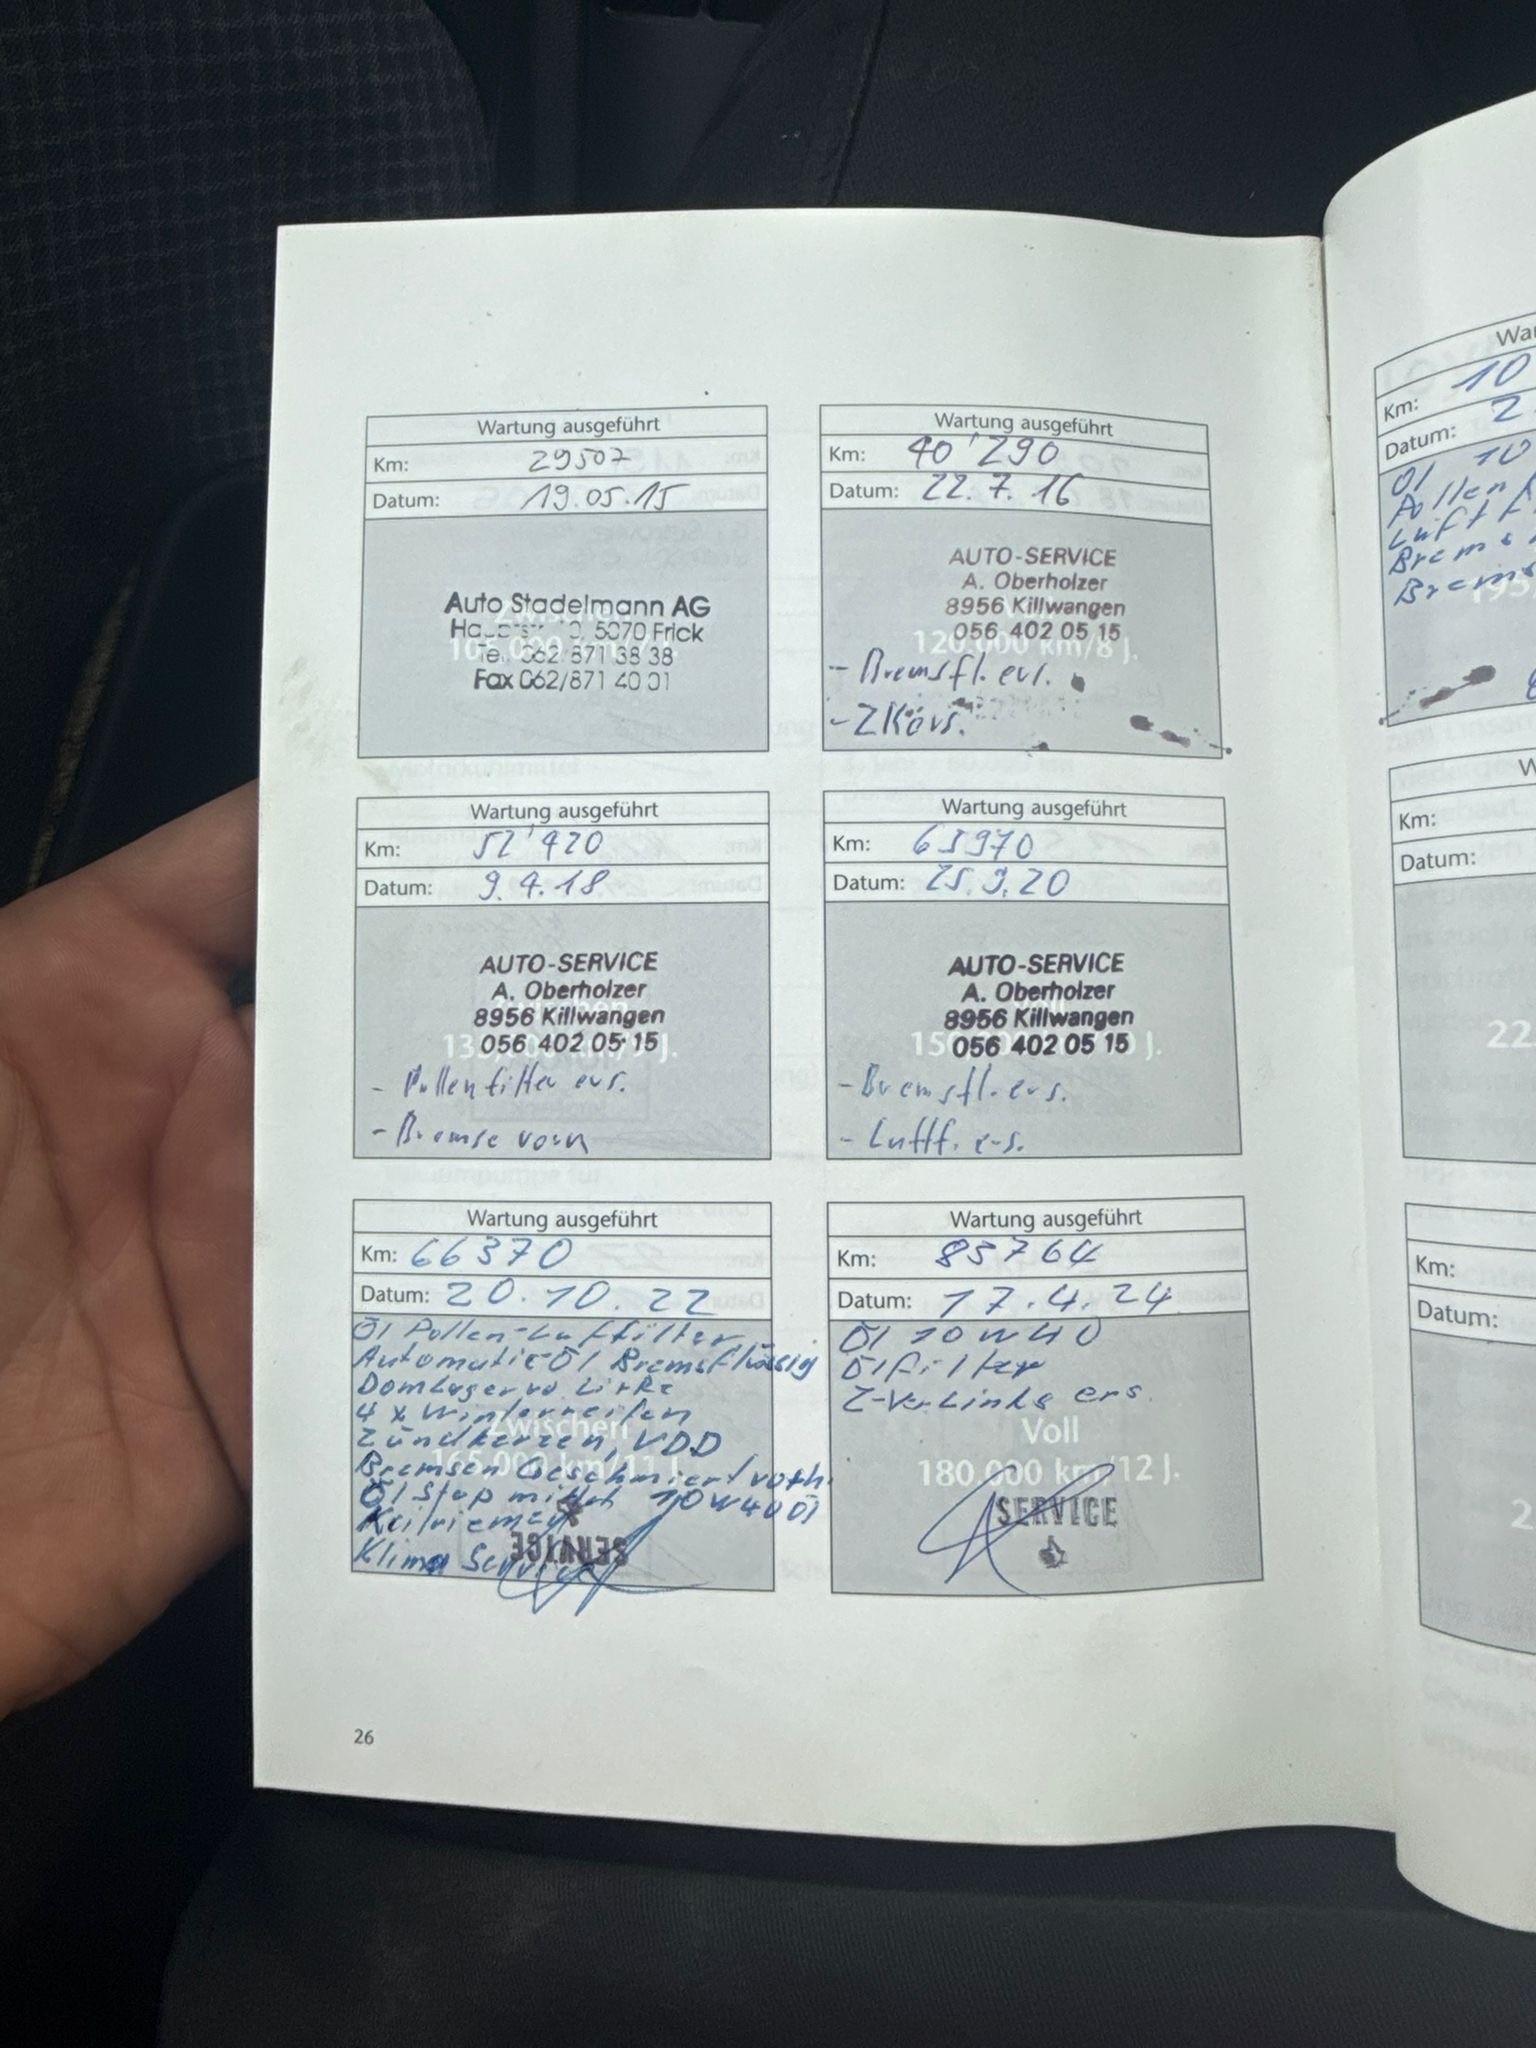 Wartung ausgeführt
Km: 29507
Datum: 19.05.15
Auto Stadelmann AG
5070 Frick
062 871 38 38
Fax 062/871 40 01
Wartung ausgeführt
Km: 40'290
Datum: 22.7.16
AUTO-SERVICE
A. Oberholzer
8956 Killwangen
056 402 05 15
120.000 km/8 J.
- Bremsfl. ers.
Wartung ausgeführt
Km: 52'420
Datum: 9.4.18
AUTO-SERVICE
A. Oberholzer
8956 Killwangen
056 402 05 15
- Pollenfilter ers.
- Bremse vorn
Wartung ausgeführt
Km: 63970
Datum: 25.9.20
AUTO-SERVICE
A. Oberholzer
8956 Killwangen
056 402 05 15
- Bremsfl. ers.
- Luftf. ers.
Wartung ausgeführt
Km: 66370
Datum: 20.10.22
Öl Pollen-Luftfilter
Automatic Öl Bremsflüssig
Domlager vo Links
4 x Winterreifen
Zwischen
Zündkerzen, VDD
165.000 km/11 J.
Bremsen geschmiert vo+h.
Öl Stop mittel 10W40 Öl
Keilriemen
Klima Service
SERVICE
Wartung ausgeführt
Km: 83764
Datum: 17.4.24
Öl 10W40
Ölfilter
Links ers.
Voll
180.000 km/12 J.
SERVICE
26
Km: 10
Datum: 2
Öl 10
Pollen
Luftf
Brems
Brems
Km:
Datum:
Km:
Datum: